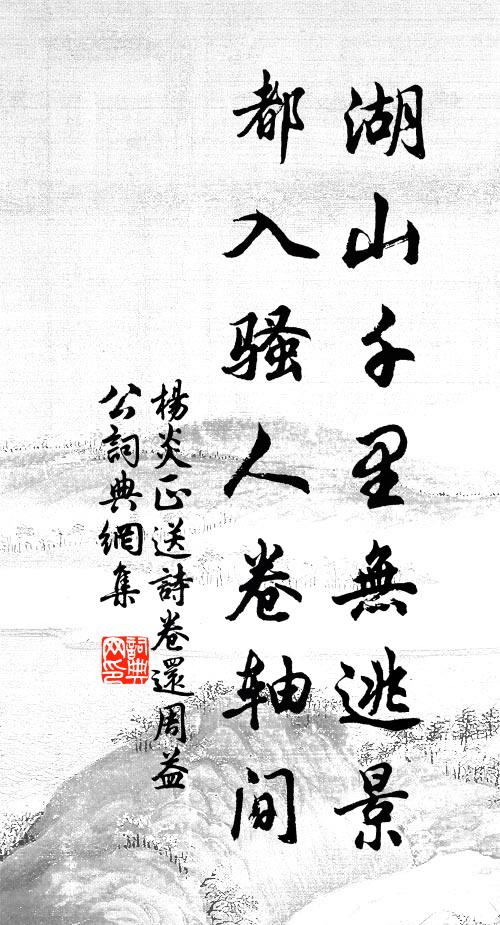 湖山千里無逃景
都入骚人卷轴间
楊炎正送詩卷還周益
公詞典網集
詞典
网印